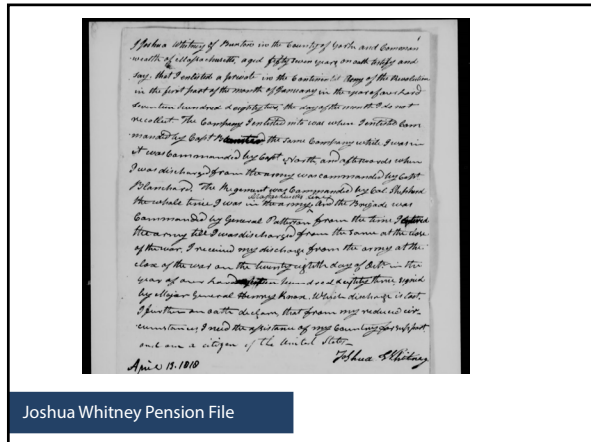 I Joshua Whitney of Buxton in the County of York and Common
wealth of Massachusetts, aged fifty seven years, on oath testify and
say, that I enlisted a private in the Continental Army of the Revolution
in the first part of the month of January in the year of our Lord
seventeen hundred & eighty two, the day of the month I do not
recollect. The Company I enlisted into was when I enlisted Com
manded by Capt the same Company while I was in
it was Commanded by Capt North and afterwards when
I was discharged from the army was commanded by Capt
Blanchard. The Regiment was Commanded by Col. Shepherd
Massachusetts line
the whole time I was in the army, And the Brigade was
Commanded by General Patterson from the time I
the army till I was discharged from the same at the close
of the war. I received my discharge from the army at the
close of the war on the twenty eighth day of Octr in the
year of our hundred & eighty three, signed
by Major General Henry Knox. Which discharge is lost.
I further on oath declare, that from my reduced cir-
cumstances I need the assistance of my Country for support
and am a citizen of the United States_
Joshua Whitney
April 13. 1818
Joshua Whitney Pension File